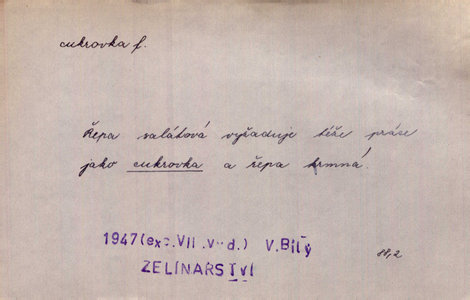 cukrovka f.
Řepa salátová vyžaduje téže práce
jako cukrovka a řepa krmná.
1947 (exc. VII. vyd.) V. Bílý
ZELINÁŘSTVÍ
88,2